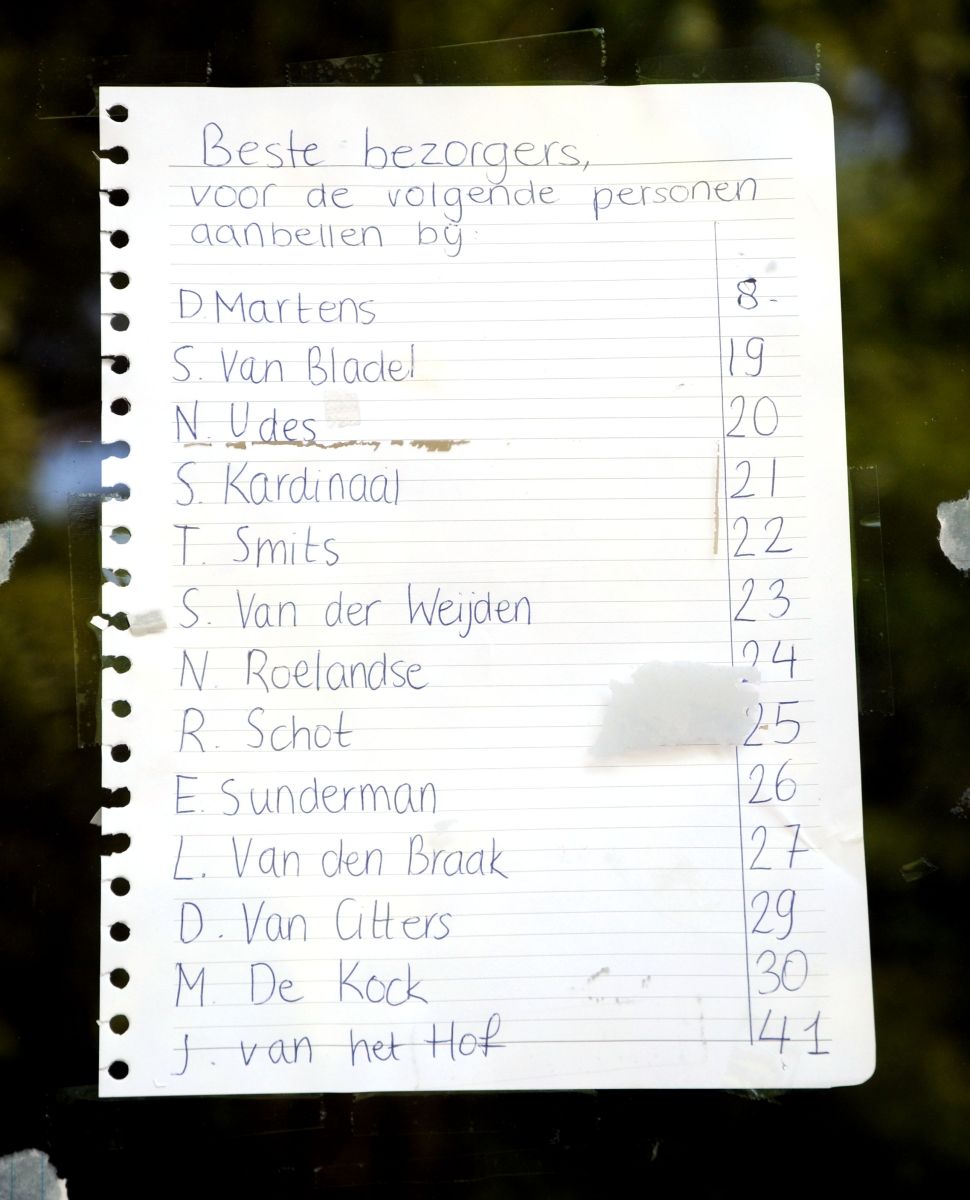 Beste bezorgers,
voor de volgende personen
aanbellen bij:
D Martens 8-
S. Van Bladel 19
N. Udes 20
S. Kardinaal 21
T. Smits 22
S. Van der Weijden 23
N. Roelandse 24
R. Schot 25
E. Sunderman 26
L. Van den Braak 27
D. Van Citters 29
M. De Kock 30
J. van het Hof 41